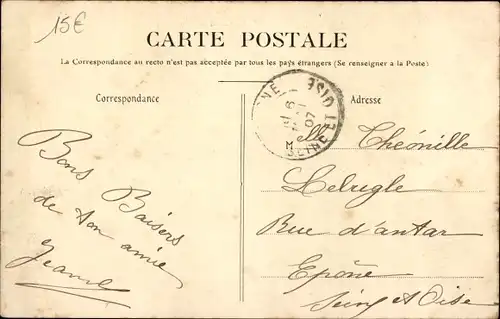 15€
CARTE POSTALE
La Correspondance au recto n'est pas acceptée par tous les pays étrangers (Se renseigner a la Poste)
Correspondance
Adresse
Bons Baisers
de ton amie
Jeanne
Melle Théonille
Lelrigle
Rue d'antar
Epône
Seine et Oise
SEINE ET OISE
07